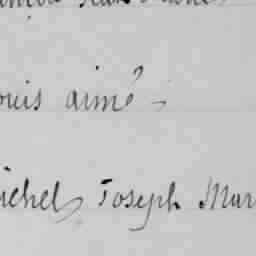 ouis aimé
ichel, Joseph Mar